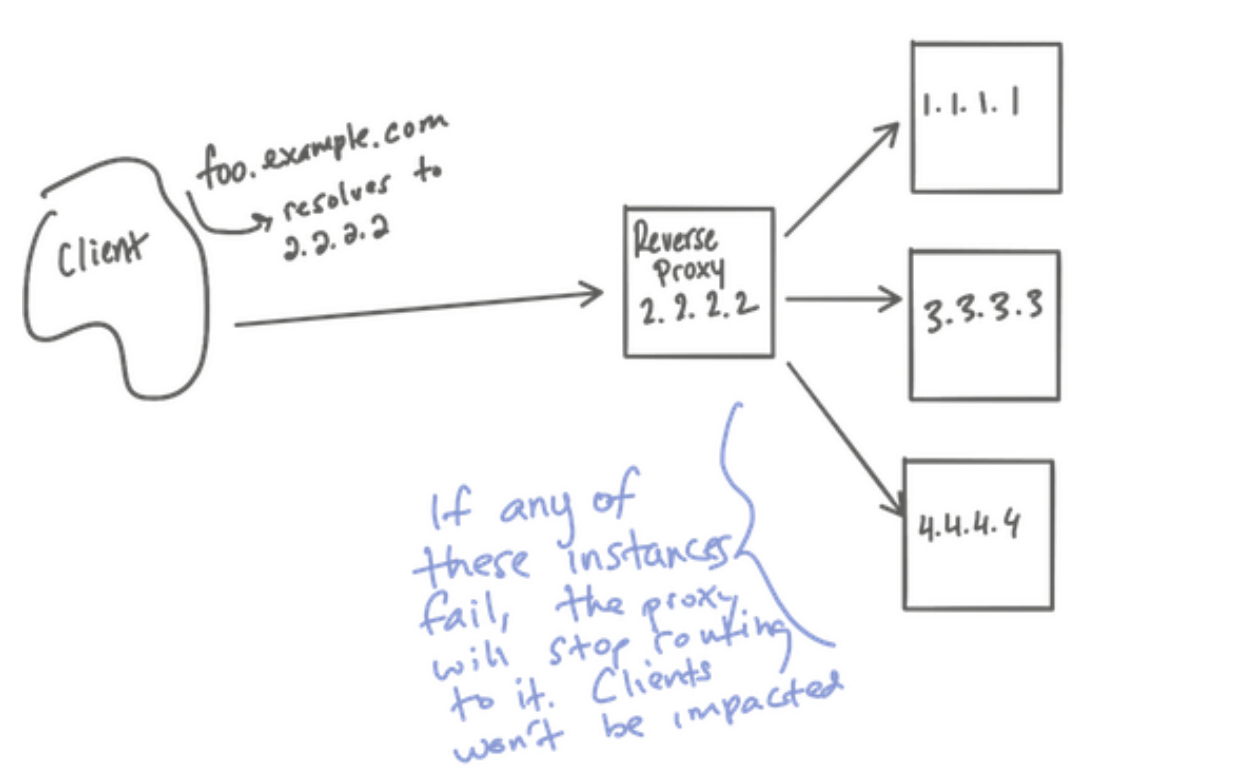 foo.example.com
resolves to
2.2.2.2
Client
Reverse
Proxy
2.2.2.2
1.1.1.1
3.3.3.3
4.4.4.4
If any of
these instances
fail, the proxy
will stop routing
to it. Clients
won't be impacted